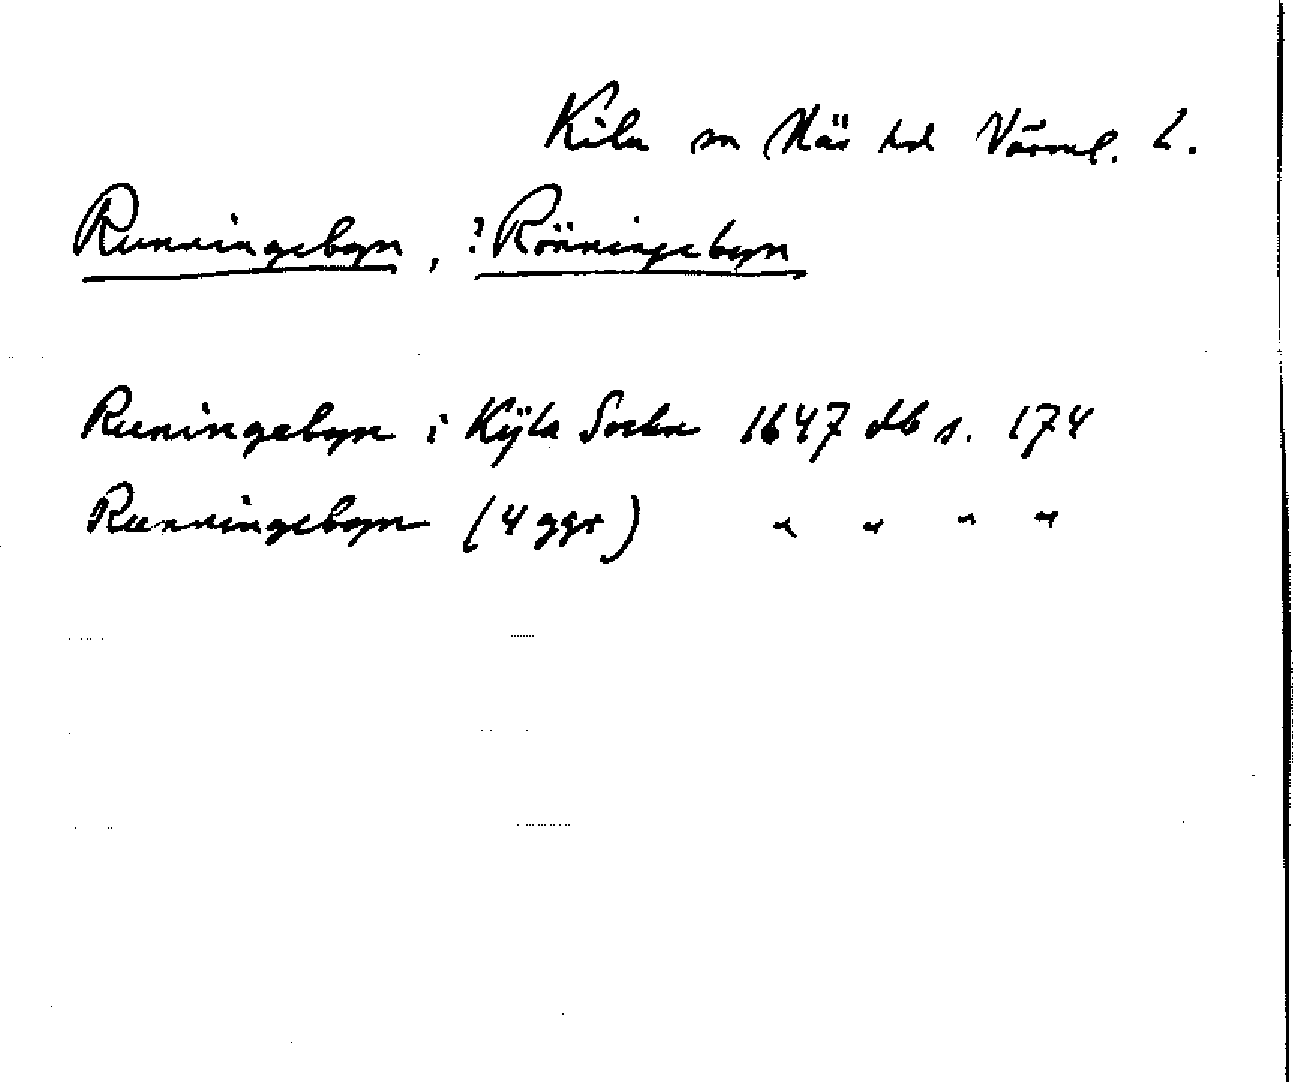 Kila sn Näs hd Värml. L.
Runningebyn, ? Rönningebyn
Runingebyn i Kÿla Sockn 1647 db s. 174
Runningebyn (4 ggr) " " " "